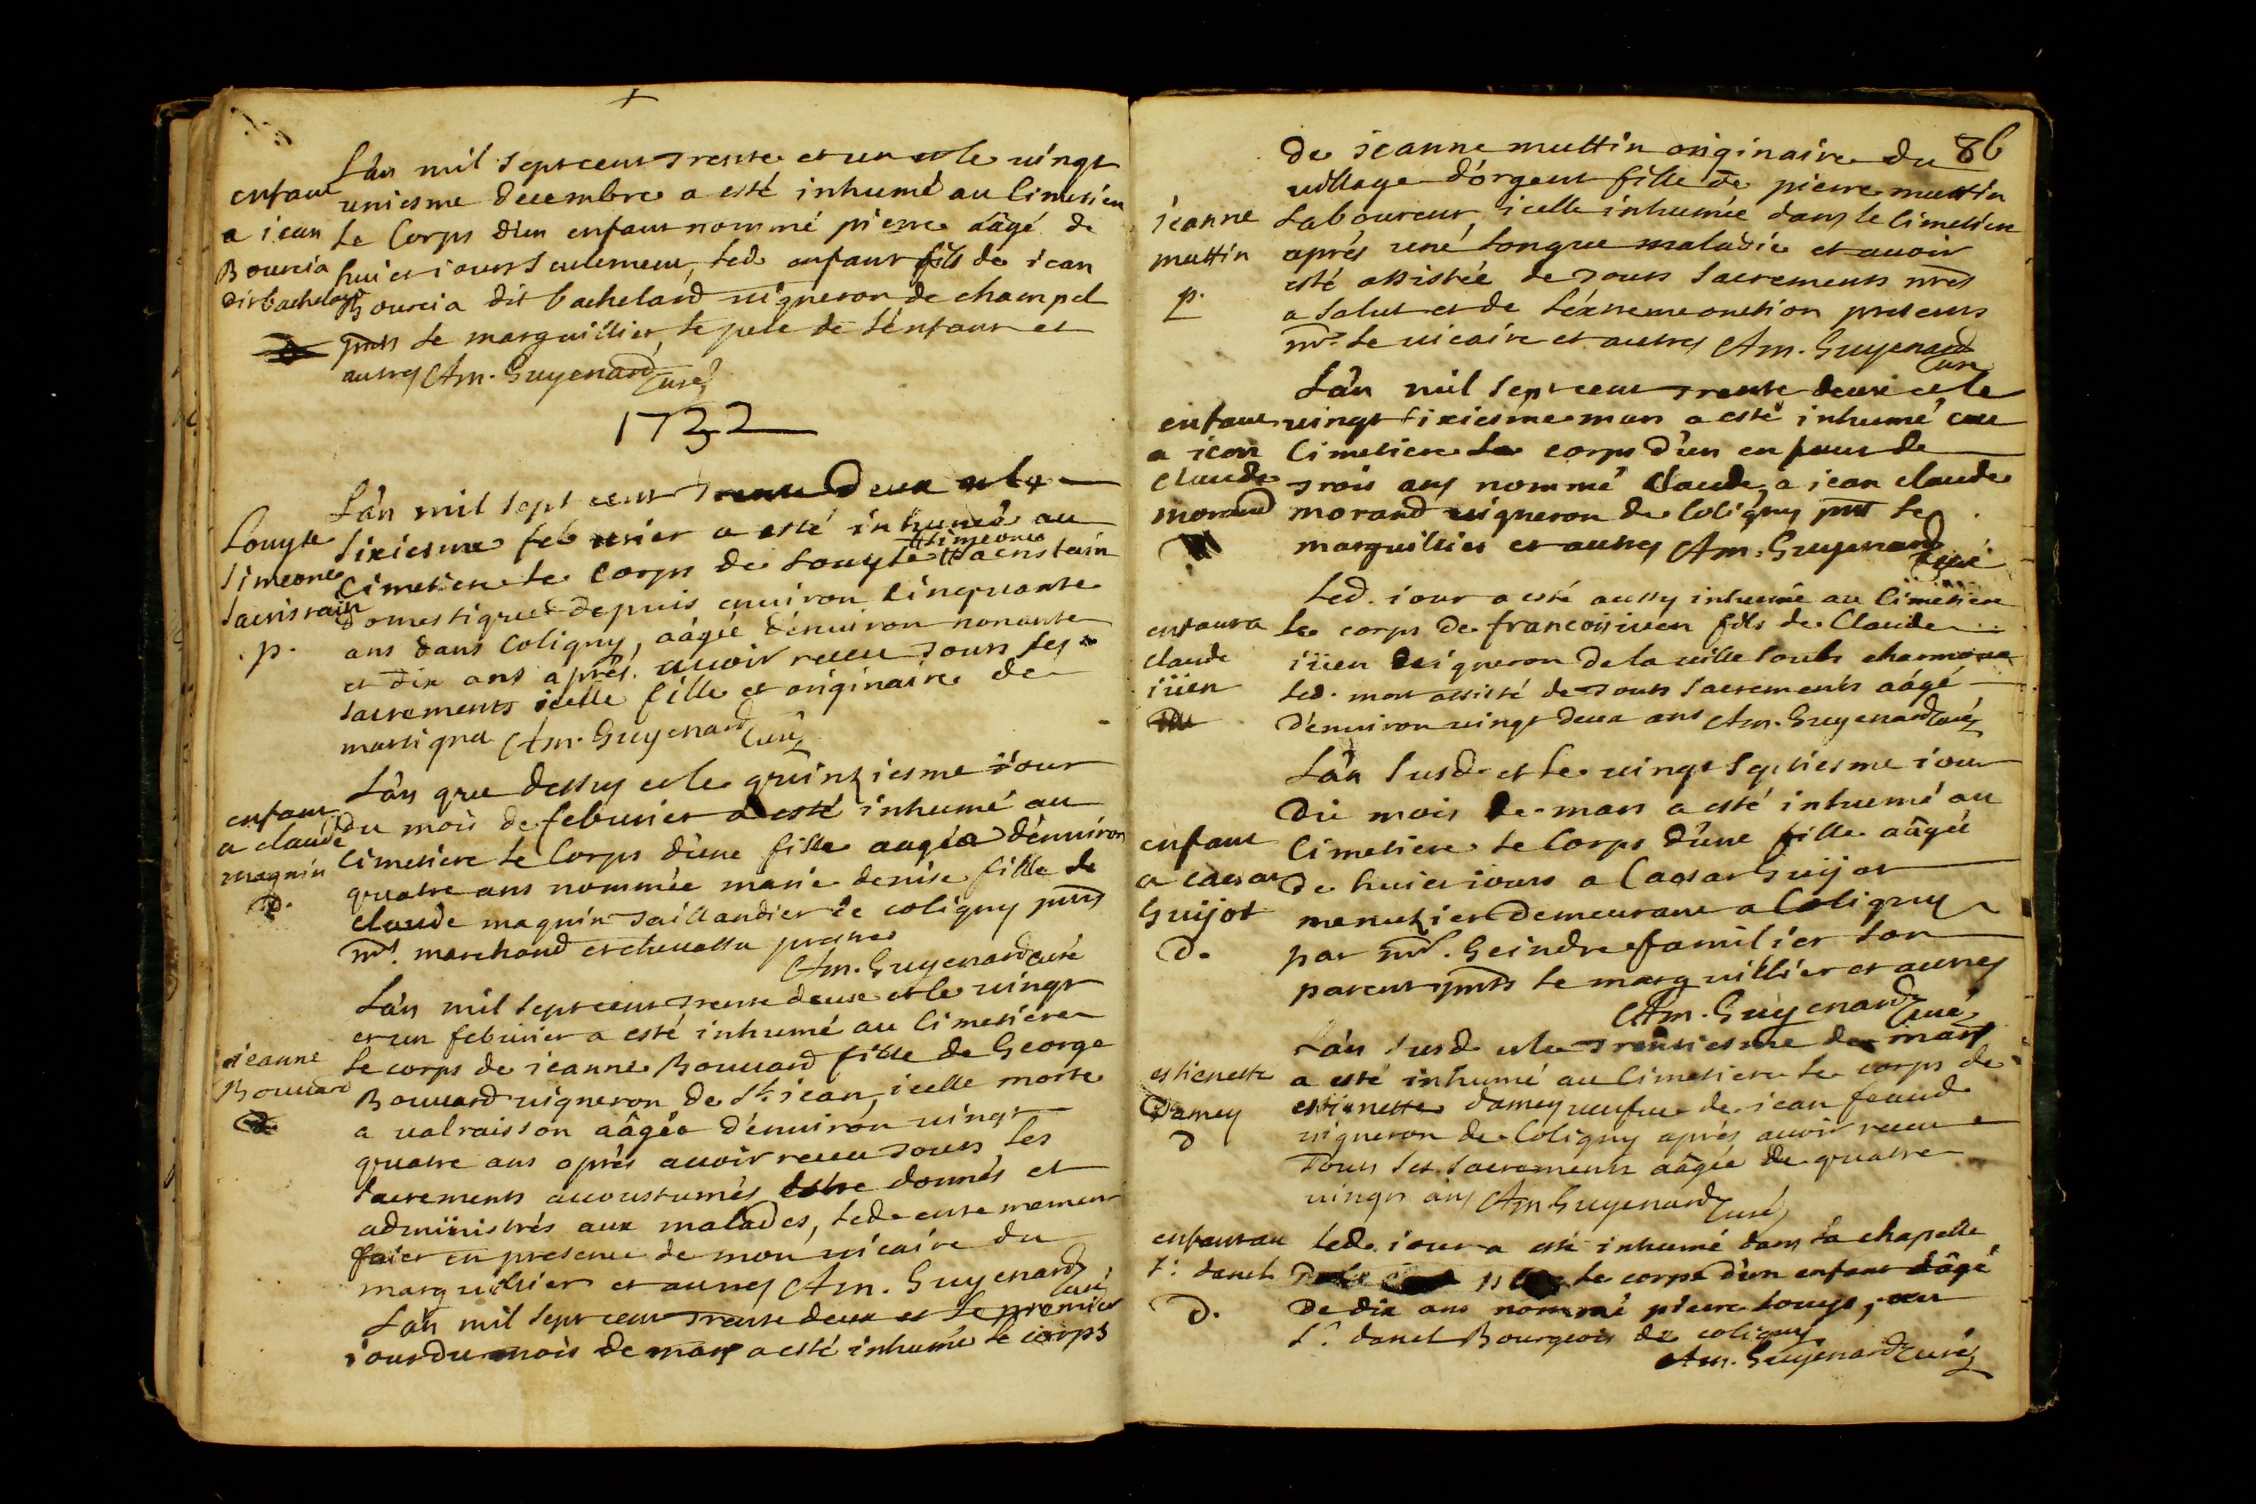 +
L'an mil sept cent trente et un et le vingt
enfant uniesme decembre a esté inhumé au Cimetiere
a iean le Corps d'un enfant nommé pierre aâgé de
Bourcia huict iours seulement, led. enfant fils de iean
dit bachelard Bourcia dit bachelard uigneron de champel
pnts le marguillier, le pere de l'enfant et
autres Am. Guyenard Curé
1732
L'an mil sept cent trente Deux et le
Louyse sixiesme feburier a esté inhumé au
simeone Cimetiere le Corps de Louyse simeone
domestique depuis enuiron cinquante
.p. ans dans Coligny, aâgée d'enuiron nonante
et dix ans aprés auoir receu tous ses
sacrements icelle fille et originaire de
martigna Am. Guyenard Curé
L'an que dessus et le quinziesme iour
enfant du mois de feburier a esté inhumé au
a claude Cimetiere le Corps d'une fille aagée d'enuiron
magnin quatre ans nommée marie denise fille de
D. claude magnin taillandier de coligny pnts
mrs. marchand et cheuassu prestres
Am. Guyenard curé
L'an mil sept cent trente deux et le vingt
et un feburier a esté inhumé au Cimetiere
ieanne le corps de ieanne Bouuard fille de George
Bouuard Bouuard uigneron de St. iean, icelle morte
a ualraisson aâgée d'enuiron uingt
quatre ans aprés auoir receu tous les
sacrements accoustumés d'estre donnés et
administrés aux malades, led. enterrement
faict en presence de mon uicaire du
marguillier et autres Am. Guyenard Curé
L'an mil sept cent trente deux et le premier
iour du mois de mars a esté inhumé le corps
86
de ieanne muttin originaire du
uillage d'orgent fille de pierre muttin
ieanne Laboureur, icelle inhumée dans le Cimetiere
muttin aprés une longue maladie et auoir
p. esté assistée de tous sacrements
a salut et de l'extreme onction presents
mr. le uicaire et autres Am. Guyenard Curé
L'an mil sept cent trente deux et le
enfant uingt sixiesme mars a esté inhumé au
a iean Cimetiere le corps d'un enfant de
claude trois ans nommé Claude, a iean claude
morand morand uigneron de Coligny pnt le
marguillier et autres Am. Guyenard Curé
Led. iour a esté aussy inhumé au Cimetiere
enfant a le corps de francois iüen fils de Claude
claude iüen uigneron de la uille soubs charmoux
iüen led. mort assisté de tous sacrements aâgé
d'enuiron uingt deux ans Am. Guyenard Curé
L'an susd. et le uingt septiesme iour
du mois de mars a esté inhumé au
enfant Cimetiere le Corps d'une fille aâgée
a caesar de huict iours a Caesar Guijot
Guijot menuzier demeurant a Coligny
D. par mr. Geindre familier son
parent pnts le marguillier et autres
Am. Guyenard Curé
L'an susd. et le trentiesme de mars
estienette a esté inhumé au Cimetiere le corps de
Damey estienette damey ueufue de iean feaud
D uigneron de Coligny aprés auoir receu
tous ses sacrements aâgée de quatre
uingts ans Am Guyenard Curé
enfant au led. iour a esté inhumé dans la chapelle
Sr. danel le corps d'un enfant aâgé
D. de dix ans nommé pierre Louys, au
Sr. danel Bourgeois de coligny
Am. Guyenard Curé